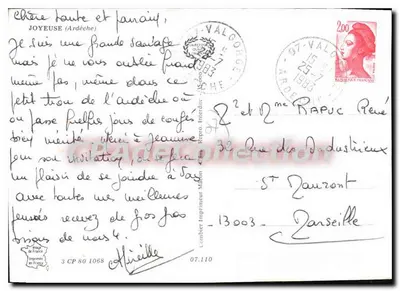 Chère tante et parrain,
JOYEUSE (Ardèche)
Je suis une grande sauvage
mais je ne vous oublie quand
même pas, même dans ce
petit coin de l'ardèche où
on passe quelques jours de congés
bien mérités. merci à Jeannine
pour son invitation
un plaisir de se joindre à
avec toutes mes meilleures
pensées recevez de gros gros
bisous de nous 4.
Mireille
3 CP 80 1068
07.110
07-VALGORGE
15
25-7
1983
ARDECHE
2,00
Mr et Mme RAPUC René
34 Rue des Industrieux
St Mauront
13003 Marseille
Combier Imprimeur Mâcon